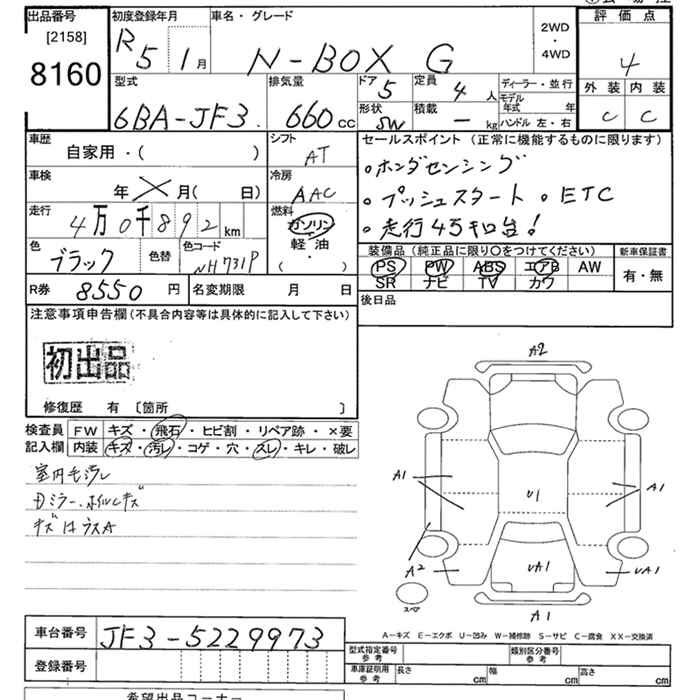 出品番号 初度登録年月 車名・グレード 評価点
[2158] R5 1月 N-BOX G 2WD・4WD 4
8160 外装 内装
型式 排気量 ドア 5 定員 4人 ディーラー・並行 C C
6BA-JF3 660cc 形状 SW 積載 -kg モデル年式 年
ハンドル 左・右
車歴 シフト セールスポイント(正常に機能するものに限ります)
自家用・( ) AT ・ホンダセンシング
車検 年 月(日) 冷房 AAC ・プッシュスタート ・ETC
走行 4万0千892km 燃料 ガソリン・軽油・( ) ・走行4万キロ台!
色 ブラック 色替 色コード NH731P
装備品(純正品に限り○をつけてください) 新車保証書
PS PW ABS エアB AW 有・無
SR ナビ TV カワ
R券 8550円 名変期限 月 日
後日品
注意事項申告欄(不具合内容等は具体的に記入して下さい)
初出品
修復歴 有 〔箇所 〕
検査員 FW キズ・飛石・ヒビ割・リペア跡・×要
記入欄 内装 キズ・汚レ・コゲ・穴・スレ・キレ・破レ
室内毛汚レ
Dミラー、ホイルキズ
キズはウスA
A2
A1 A1
U1
A2 UA1 UA1
スペア
A1
A-キズ E-エクボ U-凹み W-補修跡 S-サビ C-腐食 XX-交換済
車台番号 JF3-5229973
登録番号
型式指定番号 参考 類別区分番号 参考
車庫証明用 参考 長さ cm 幅 cm 高さ cm
希望出品コーナー